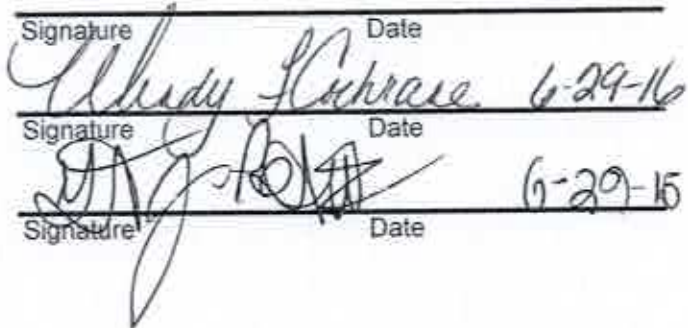 Signature Date
Cochrane 6-29-16
Signature Date
6-29-15
Signature Date